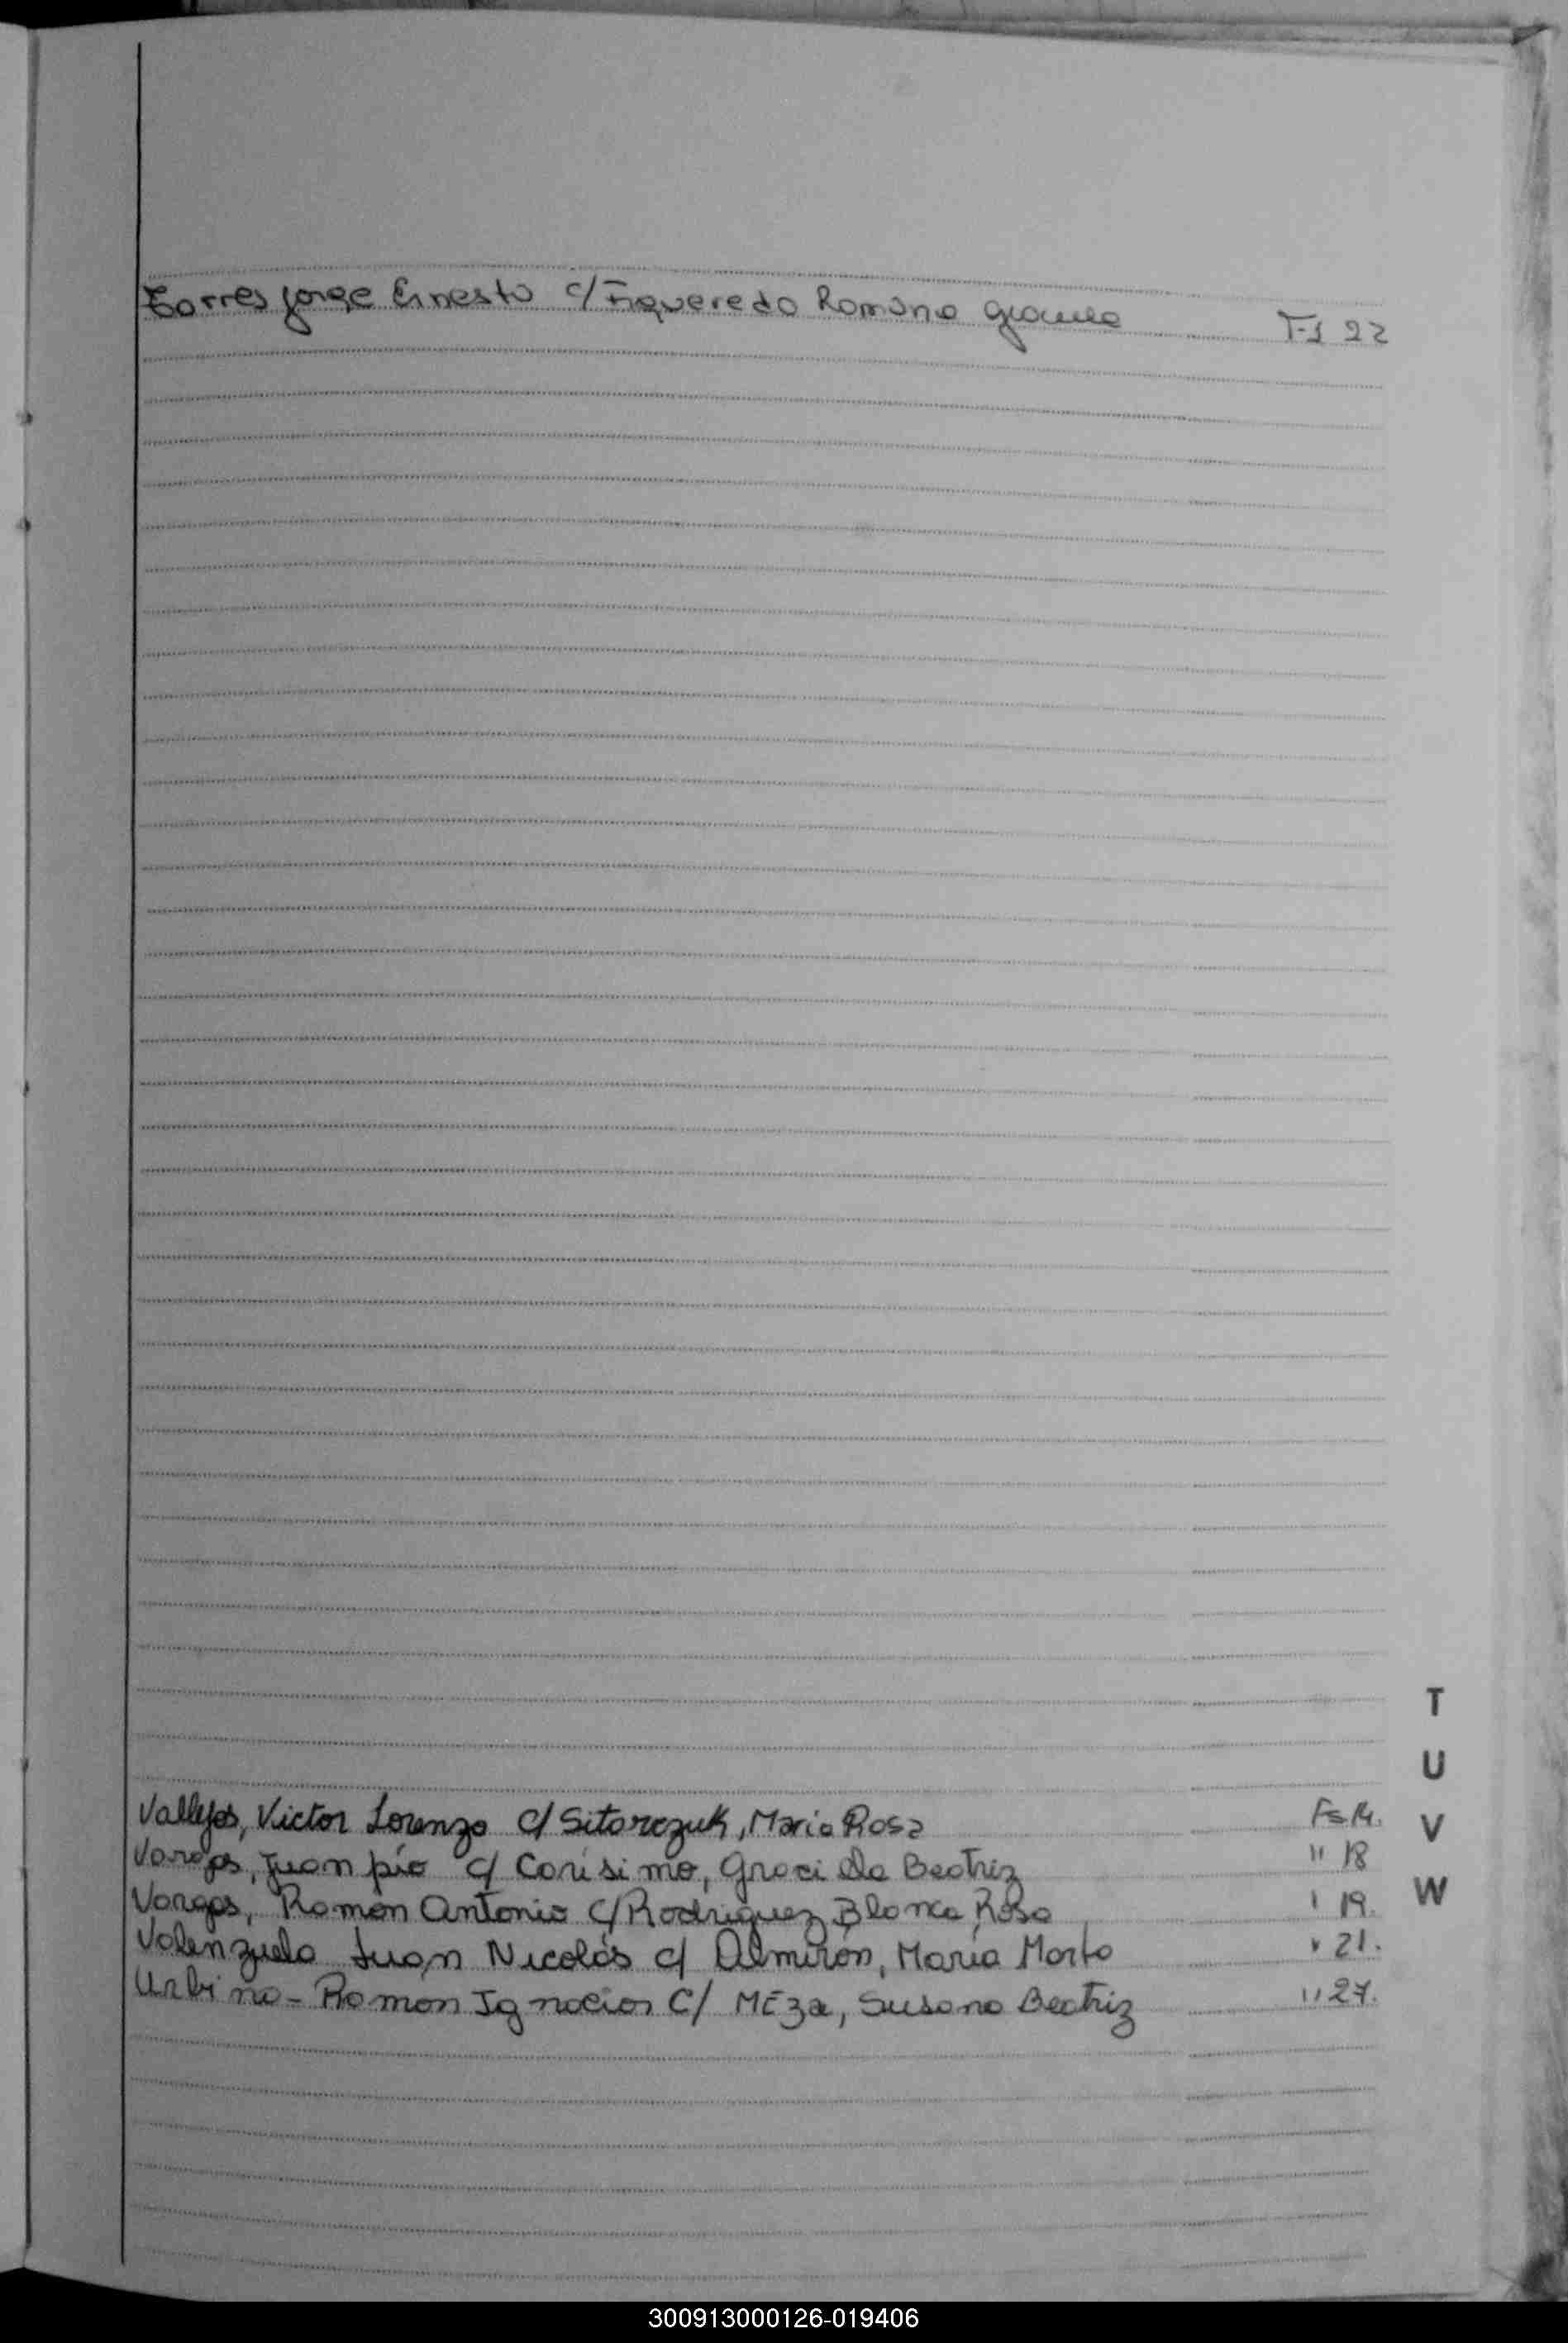 Torres Jorge Ernesto c/ Figueredo Romona Fs 22
Vallejos, Victor Lorenzo c/ Sitarczuk, Maria Rosa Fs 14.
Vargas, Juan pío c/ Carísimo, Graciela Beatriz " 18
Vargas, Ramon Antonio c/ Rodriguez Blanca Rosa " 19.
Valenzuela Juan Nicolás c/ Almirón, María Marta " 21.
Urbino - Ramon Ignacio c/ MEza, Susana Beatriz " 27.
T
U
V
W
300913000126-019406